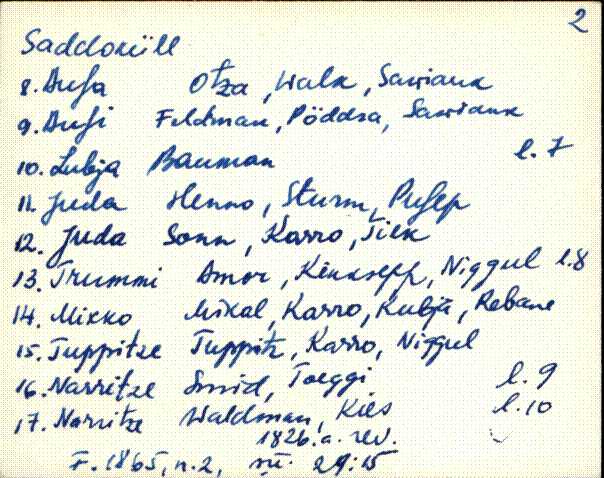 2
Saddoküll
8. Ansa Otza, Walk, Sawiauk
9. Ansi Feldman, Pöddra, Sawiauk
10. Lubja Bauman l. 7
11. Juda Henno, Sturm, Pusep
12. Juda Sonn, Karro, Tiek
13. Trummi Amor, Kinksepp, Niggul l.8
14. Mikko Mikal, Karro, Kubja, Rebane
15. Tuppitze Tuppitz, Karro, Niggul
16. Narritze Smid, Toeggi l. 9
17. Narritze Waldman, Kies l.10
1826.a. rev.
F. 1865, n. 2, 29:15